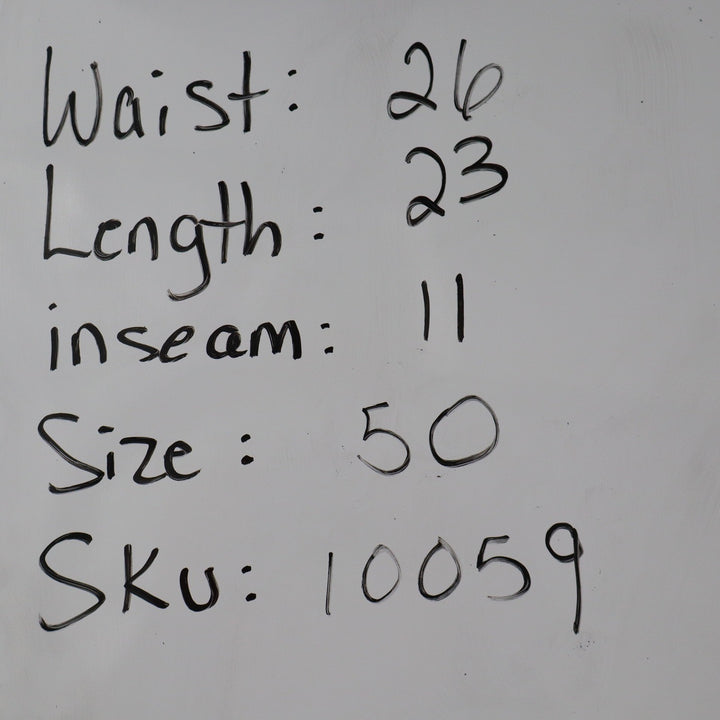 Waist: 26
Length: 23
inseam: 11
Size: 50
SKU: 10059